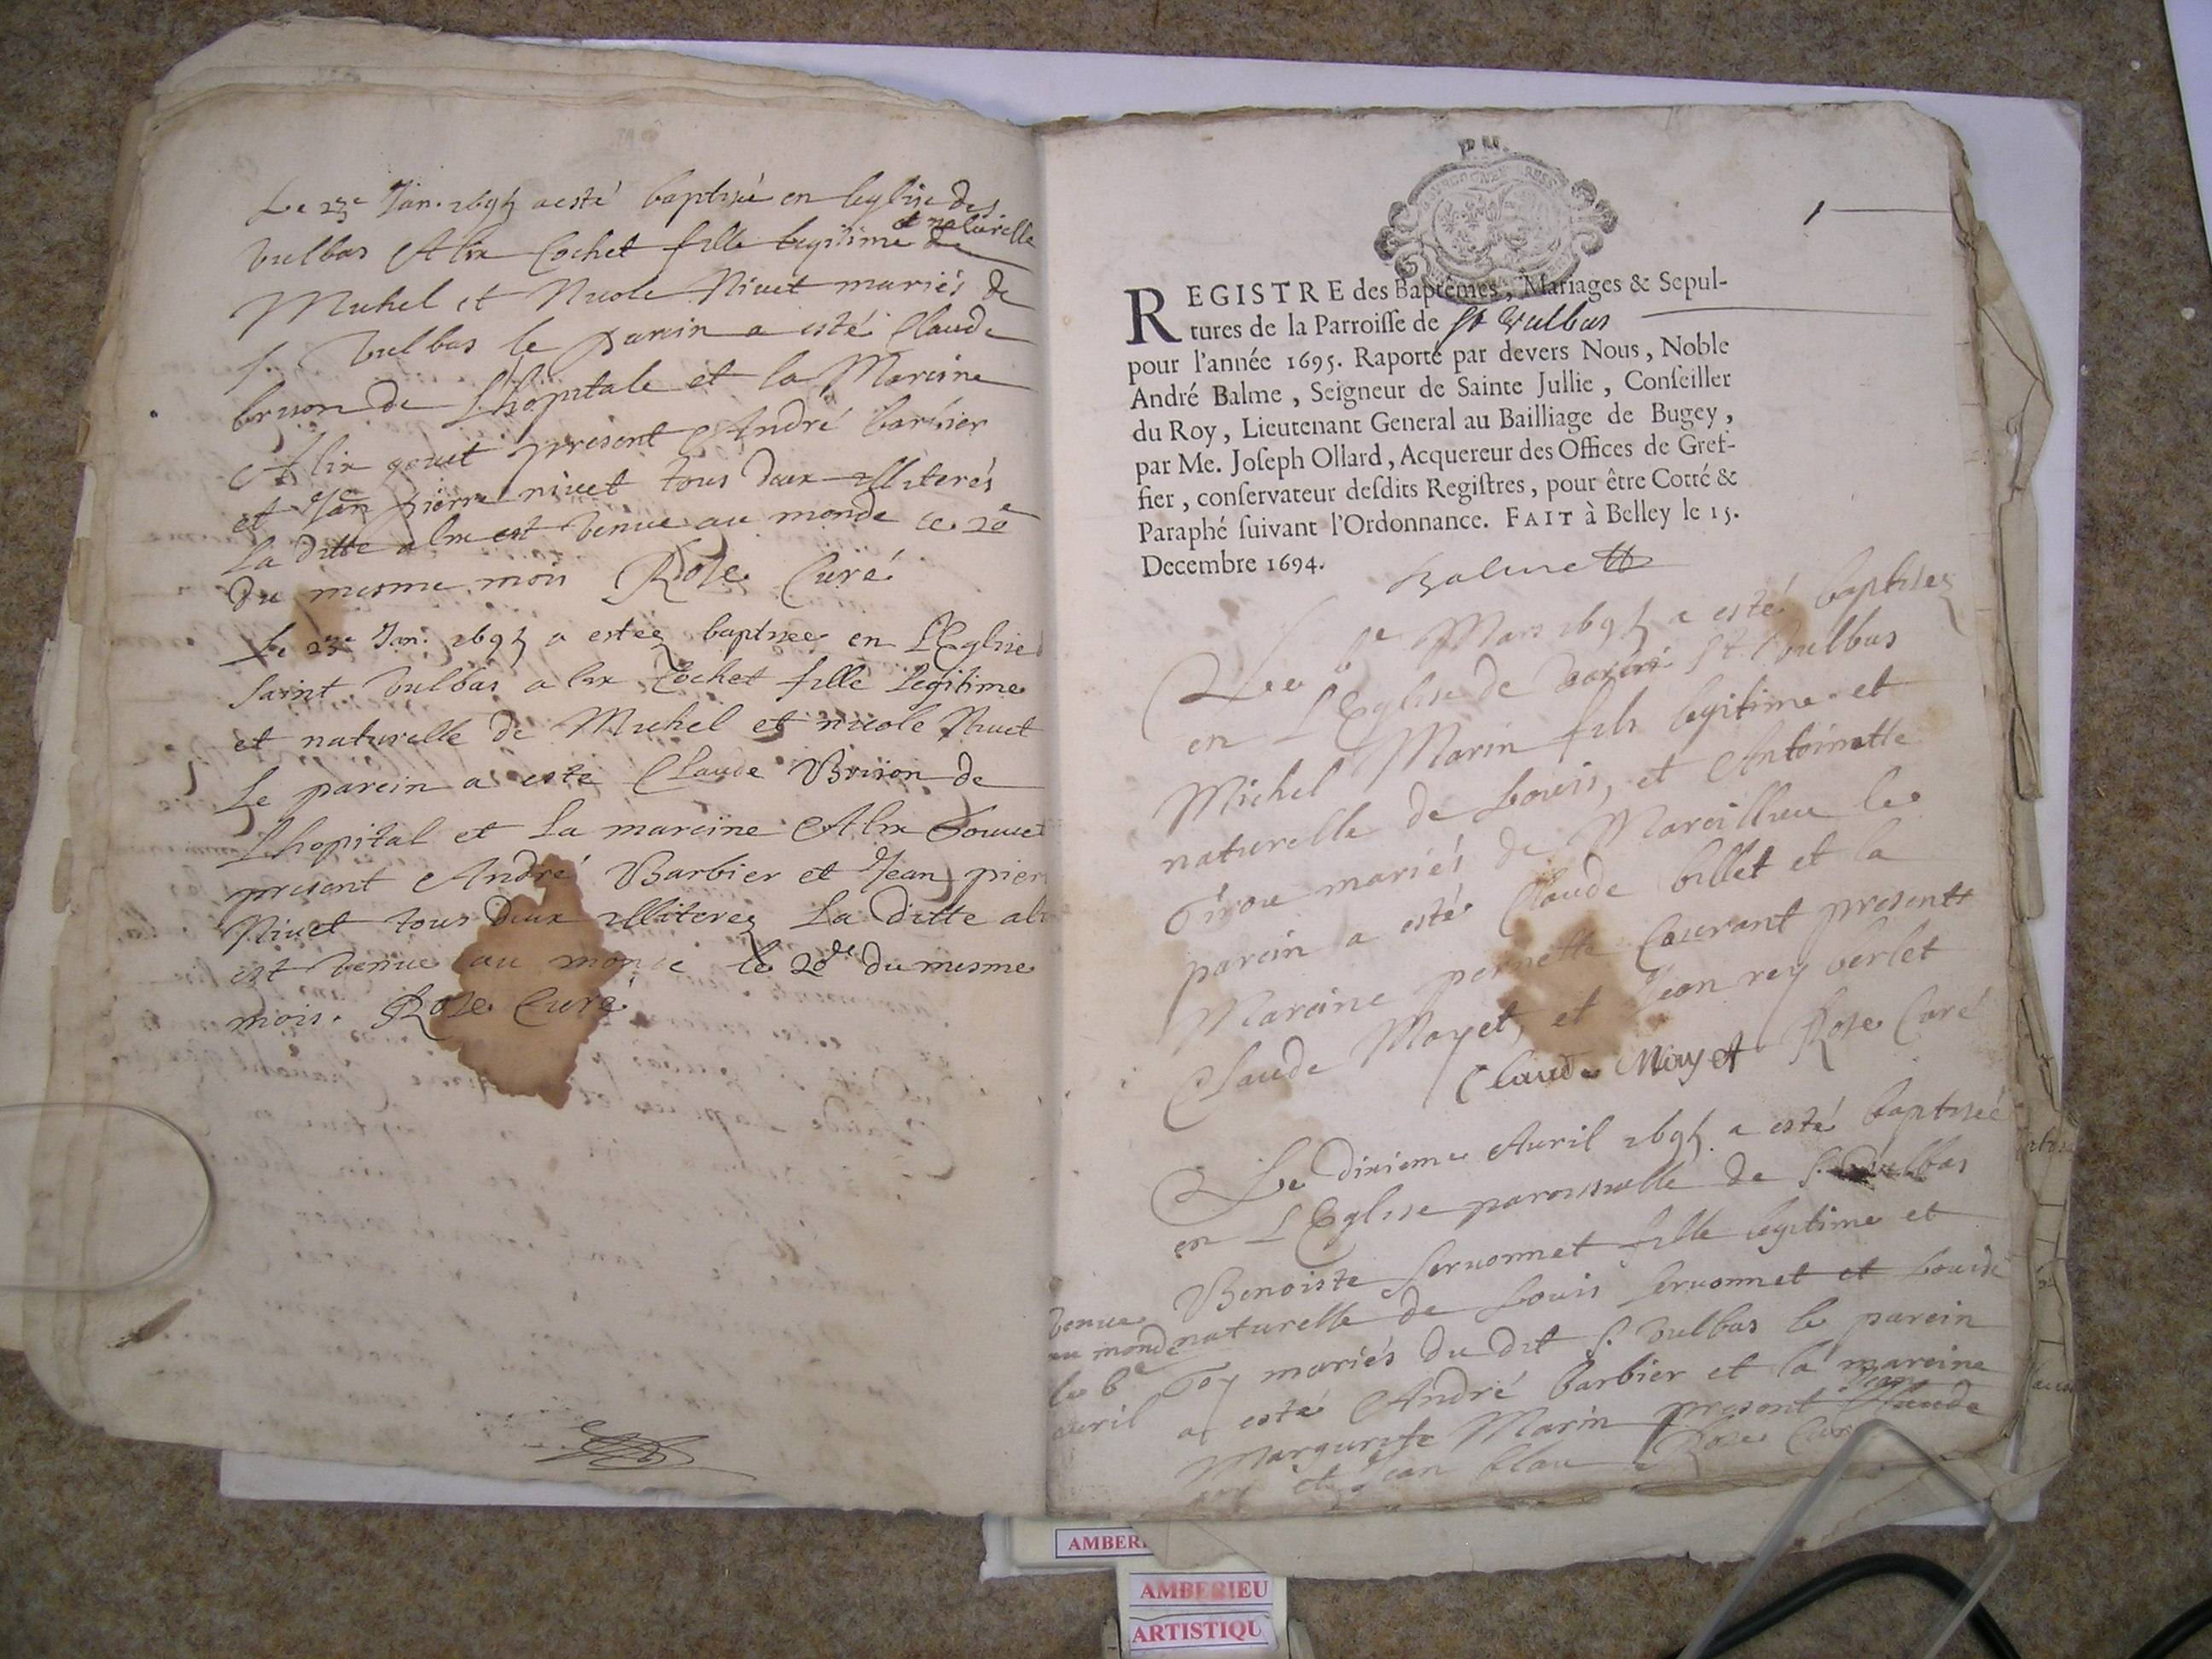 Le 23e Jan. 1695 a esté baptisée en leglise des
et naturelle
Vulbas Alix Cochet fille legitime de
Michel et Nicole Nivet mariés de
S. Vulbas le parein a esté Claude
brison de Lhopitale et la Mareine
Alix govet present André barbier
et Jan pierre nivet tous deux illiterés
la ditte alix est venue au monde ce 20e
du mesme mois Roze Curé
Le 23e Jan. 1695 a esteé baptisee en LEglise
Saint Vulbas alix Cochet fille Legitime
et naturelle de Michel et nicole Nivet
Le parein a esté Claude Brison de
Lhopital et La mareine Alix Gouvet
present André Barbier et Jean pier
Nivet tous deux illiterez La ditte ali
est venue au monde le 20de du mesme
mois. Roze Curé
1
REGISTRE des Baptêmes, Mariages & Sepul-
tures de la Parroisse de St Vulbas
pour l'année 1695. Raporté par devers Nous, Noble
André Balme, Seigneur de Sainte Jullie, Conseiller
du Roy, Lieutenant General au Bailliage de Bugey,
par Me. Joseph Ollard, Acquereur des Offices de Gref-
fier, conservateur desdits Registres, pour être Cotté &
Paraphé suivant l'Ordonnance. FAIT à Belley le 15.
Decembre 1694.
Balme
Le 6e Mars 1695 a esté baptisez
en LEglise de St Vulbas
Michel Marin fils legitime et
naturelle de Louis, et Antoinette
Girou mariés de Marcillieu le
parein a esté Claude billet et la
Mareine pernette Courant present
Claude Mayet, et Jean rey verlet
Claude Mayet Roze Curé
Le dixieme Auril 1695 a esté baptisée
en LEglise paroissialle de S. Vulbas
Benoiste Servonnet fille legitime et
naturelle de Louis Servonnet et Louise
Goy mariés du dit S. Vulbas le parein
a esté André barbier et la mareine
Margurite Marin present
et Jean Roze Curé
venue
au monde
le 6e
avril
AMBER
AMBERIEU
ARTISTIQU